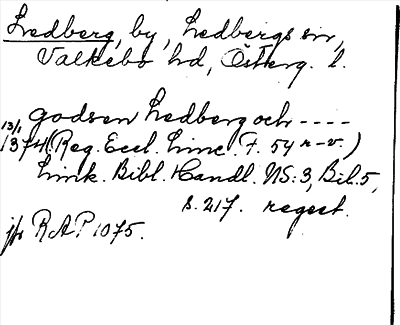 Ledberg, by, Ledbergs sn,
Valkebo hd, Österg. l.
godsen Ledberg och ----
13/1 1374 (Reg. Eccl. Linc. F. 54 r-v.)
Link. Bibl. Handl. NS:3, Bil. 5,
s. 217. regest.
jfr RAP 1075.